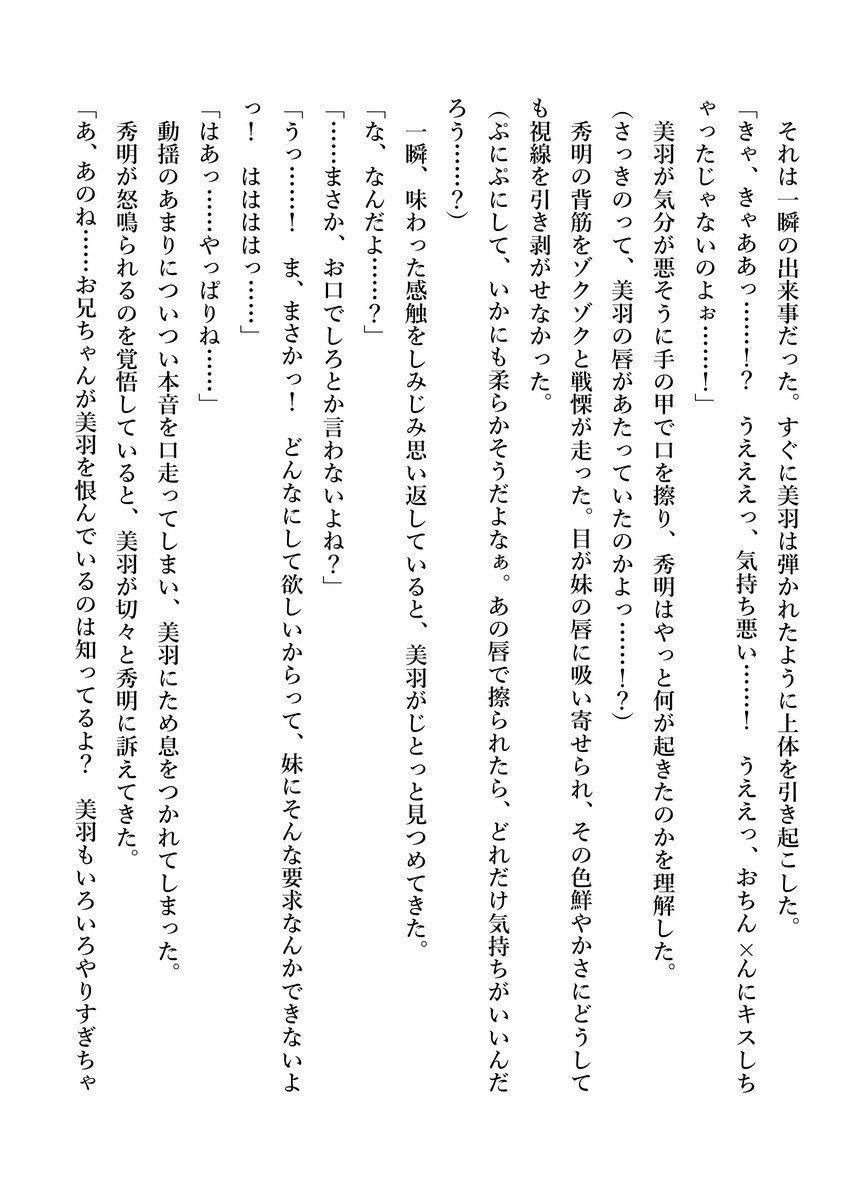 それは一瞬の出来事だった。すぐに美羽は弾かれたように上体を引き起こした。
「きゃ、きゃああっ……！？　うえええっ、気持ち悪い……！　うええっ、おちん×んにキスしち
ゃったじゃないのよぉ……！」
美羽が気分が悪そうに手の甲で口を擦り、秀明はやっと何が起きたのかを理解した。
（さっきのって、美羽の唇があたっていたのかよっ……！？）
秀明の背筋をゾクゾクと戦慄が走った。目が妹の唇に吸い寄せられ、その色鮮やかさにどうして
も視線を引き剥がせなかった。
（ぷにぷにして、いかにも柔らかそうだよなぁ。あの唇で擦られたら、どれだけ気持ちがいいんだ
ろう……？）
一瞬、味わった感触をしみじみ思い返していると、美羽がじとっと見つめてきた。
「な、なんだよ……？」
「……まさか、お口でしろとか言わないよね？」
「うっ……！　ま、まさかっ！　どんなにして欲しいからって、妹にそんな要求なんかできないよ
っ！　ははははっ……」
「はあっ……やっぱりね……」
動揺のあまりについつい本音を口走ってしまい、美羽にため息をつかれてしまった。
秀明が怒鳴られるのを覚悟していると、美羽が切々と秀明に訴えてきた。
「あ、あのね……お兄ちゃんが美羽を恨んでいるのは知ってるよ？　美羽もいろいろやりすぎちゃ